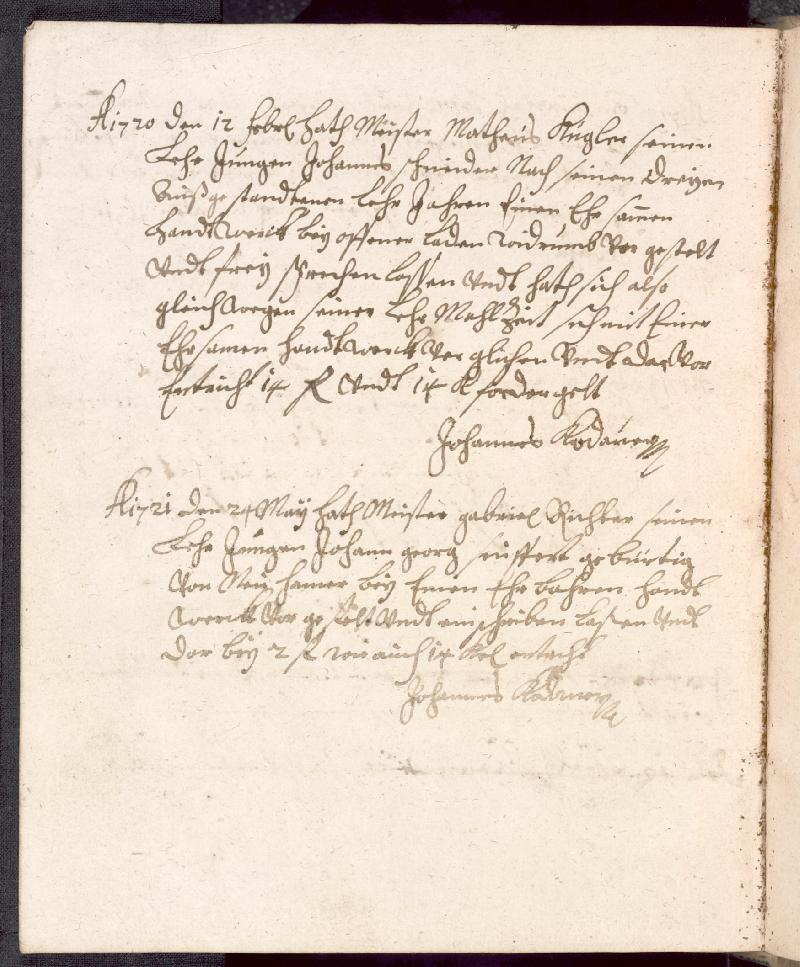 A 1720 den 12 Febrl hath Meister Mathaus Kugler seinen
Lehr Jungen Johannes schneider Nach seinen dreyen
Auß gestandtenen Lehr Jahren Einen Ehr samen
Handtwerck bey offener Laden widrumb Vor gestelt
Vndt frey sprechen lassen Vndt hath sich also
gleich wegen seiner Lehr Mahlzeit sich mit Einer
Ehrsamen Handtwerck Ver glichen Vndt dar Vor
Entricht 14 fl Vndt 14 K forder gelt
Johannes
A 1721 den 24 May hath Meister gabriel Richter seinen
Lehr Jungen Johann georg seuffert gebürtig
Von Neu hamer bey Einen Ehr bahren Handt
werck Vor gestelt Vndt einschreiben laßen Vndt
dar bey 2 fl wie auch 14 Kel
Johannes